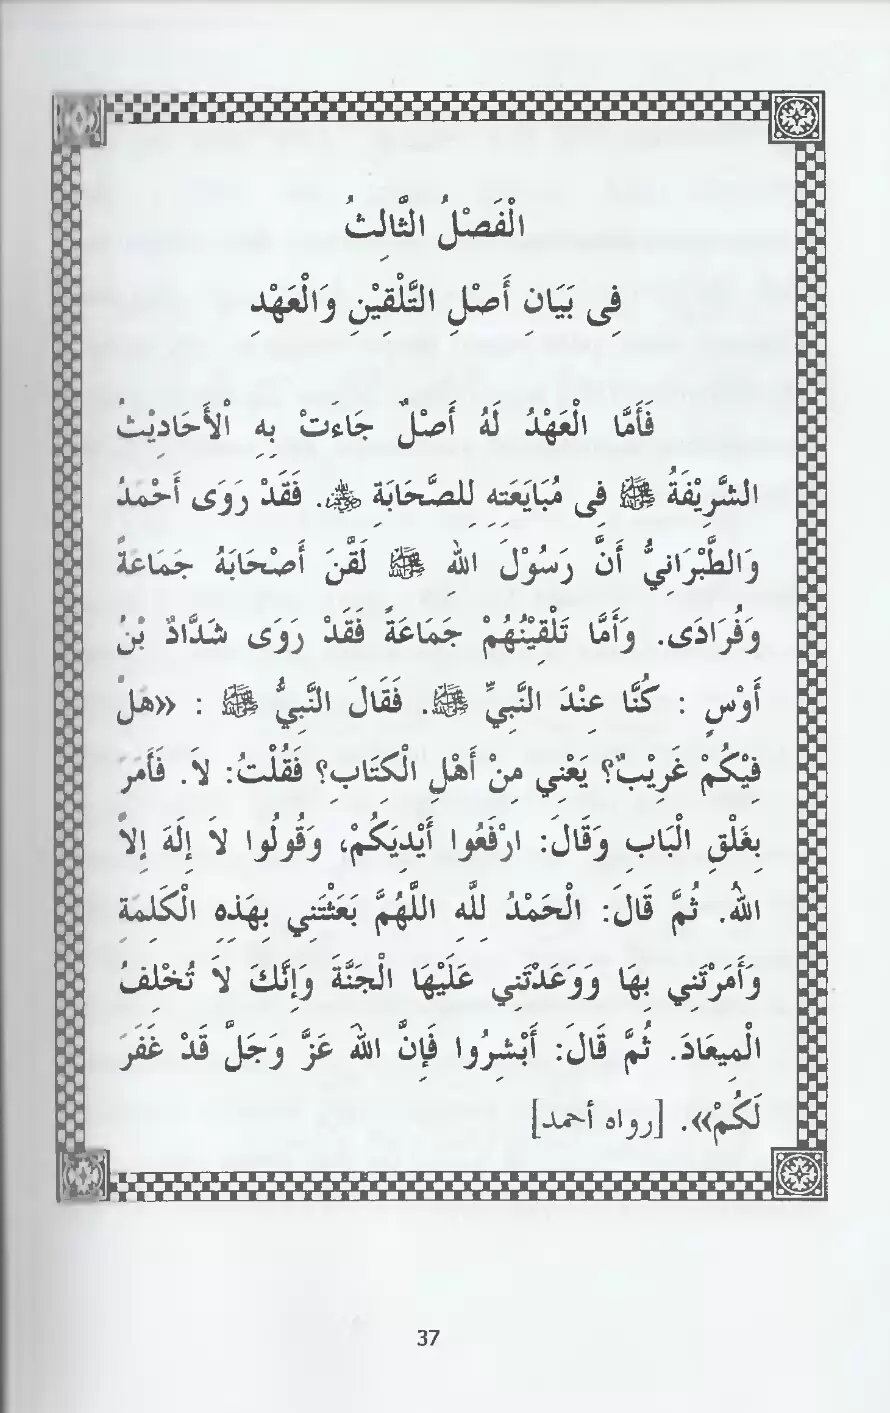 الْفَصْلُ الثَّالِثُ
فِى بَيَانِ أَصْلِ التَّلْقِيْنِ وَالْعَهْدِ
فَأَمَّا الْعَهْدُ لَهُ أَصْلٌ جَاءَتْ بِهِ الْأَحَادِيْثُ
الشَّرِيْفَةُ ﷺ فِى مُبَايَعَتِهِ لِلصَّحَابَةِ ﷺ. فَقَدْ رَوَى أَحْمَدُ
وَالطَّبْرَانِيُّ أَنَّ رَسُوْلَ اللهِ ﷺ لَقَّنَ أَصْحَابَهُ جَمَاعَةً
وَفُرَادَى. وَأَمَّا تَلْقِيْنُهُمْ جَمَاعَةً فَقَدْ رَوَى شَدَّادٌ بْنُ
أَوْسٍ : كُنَّا عِنْدَ النَّبِيِّ ﷺ. فَقَالَ النَّبِيُّ ﷺ : «هَلْ
فِيْكُمْ غَرِيْبٌ؟ يَعْنِي مِنْ أَهْلِ الْكِتَابِ؟ فَقُلْتُ: لاَ. فَأَمَرَ
بِغَلْقِ الْبَابِ وَقَالَ: ارْفَعُوا أَيْدِيَكُمْ، وَقُولُوا لاَ إِلَهَ إِلاَّ
اللهُ. ثُمَّ قَالَ: الْحَمْدُ لِلَّهِ اللَّهُمَّ بَعَثْتَنِي بِهَذِهِ الْكَلِمَةِ
وَأَمَرْتَنِي بِهَا وَوَعَدْتَنِي عَلَيْهَا الْجَنَّةَ وَإِنَّكَ لاَ تُخْلِفُ
الْمِيعَادَ. ثُمَّ قَالَ: أَبْشِرُوا فَإِنَّ اللهَ عَزَّ وَجَلَّ قَدْ غَفَرَ
لَكُمْ». [رواه أحمد]
37